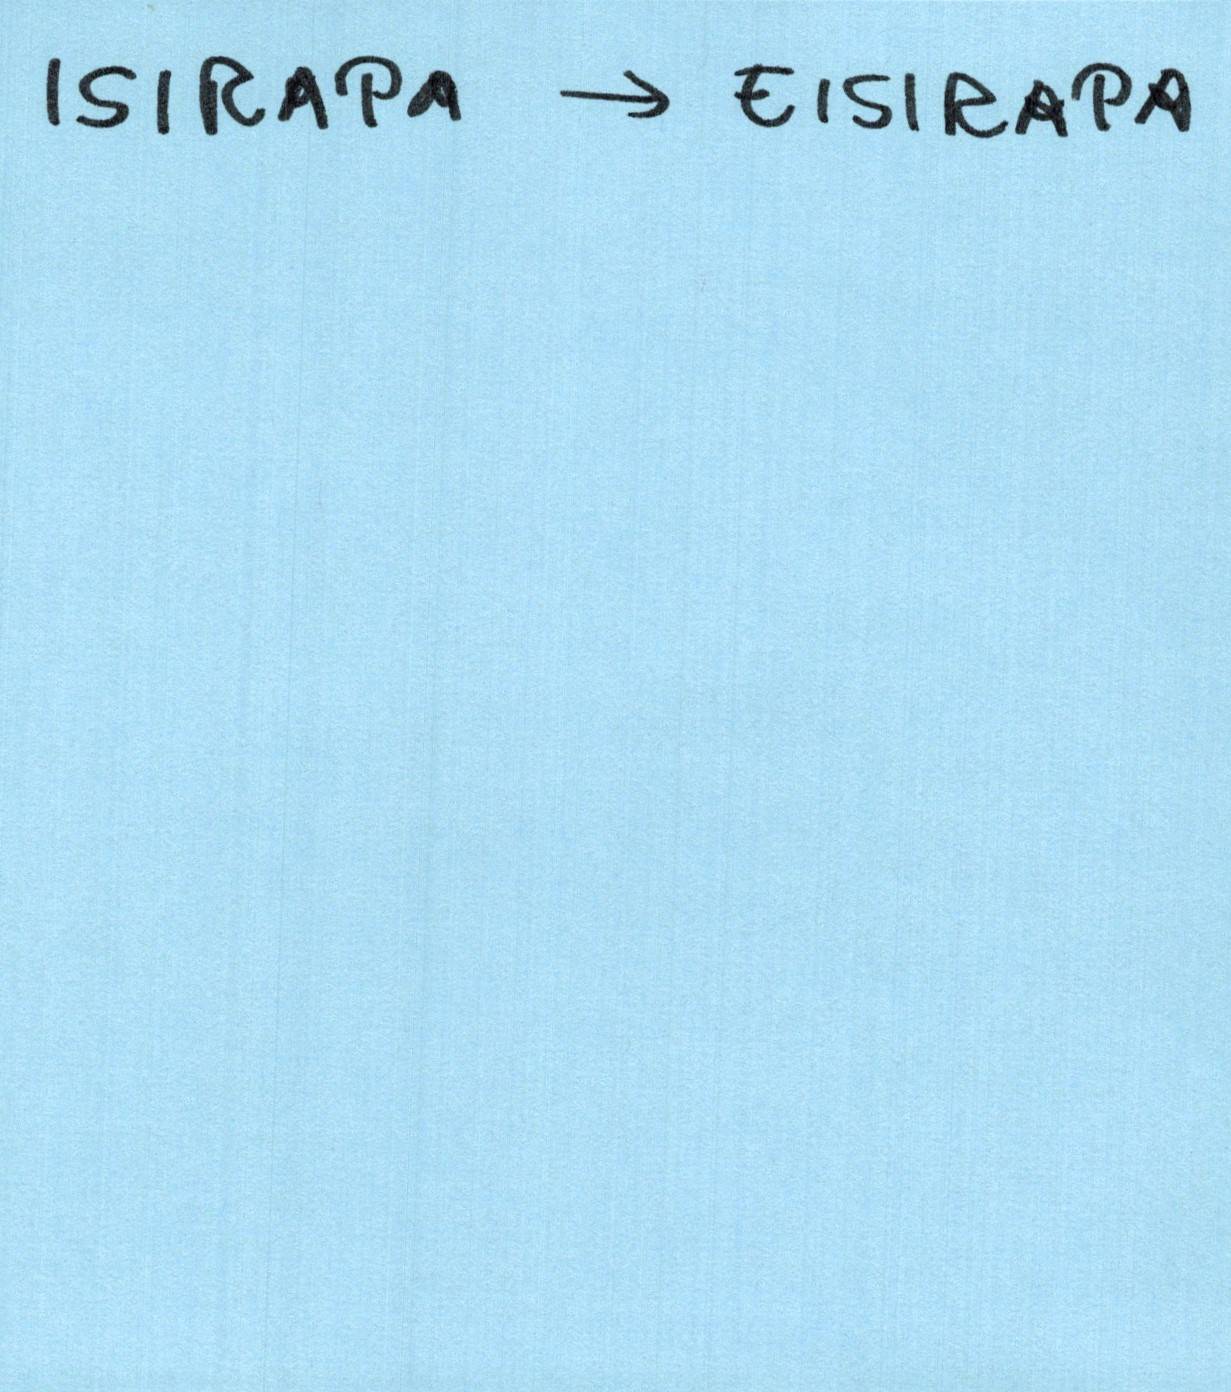 ISIRAPA → EISIRAPA